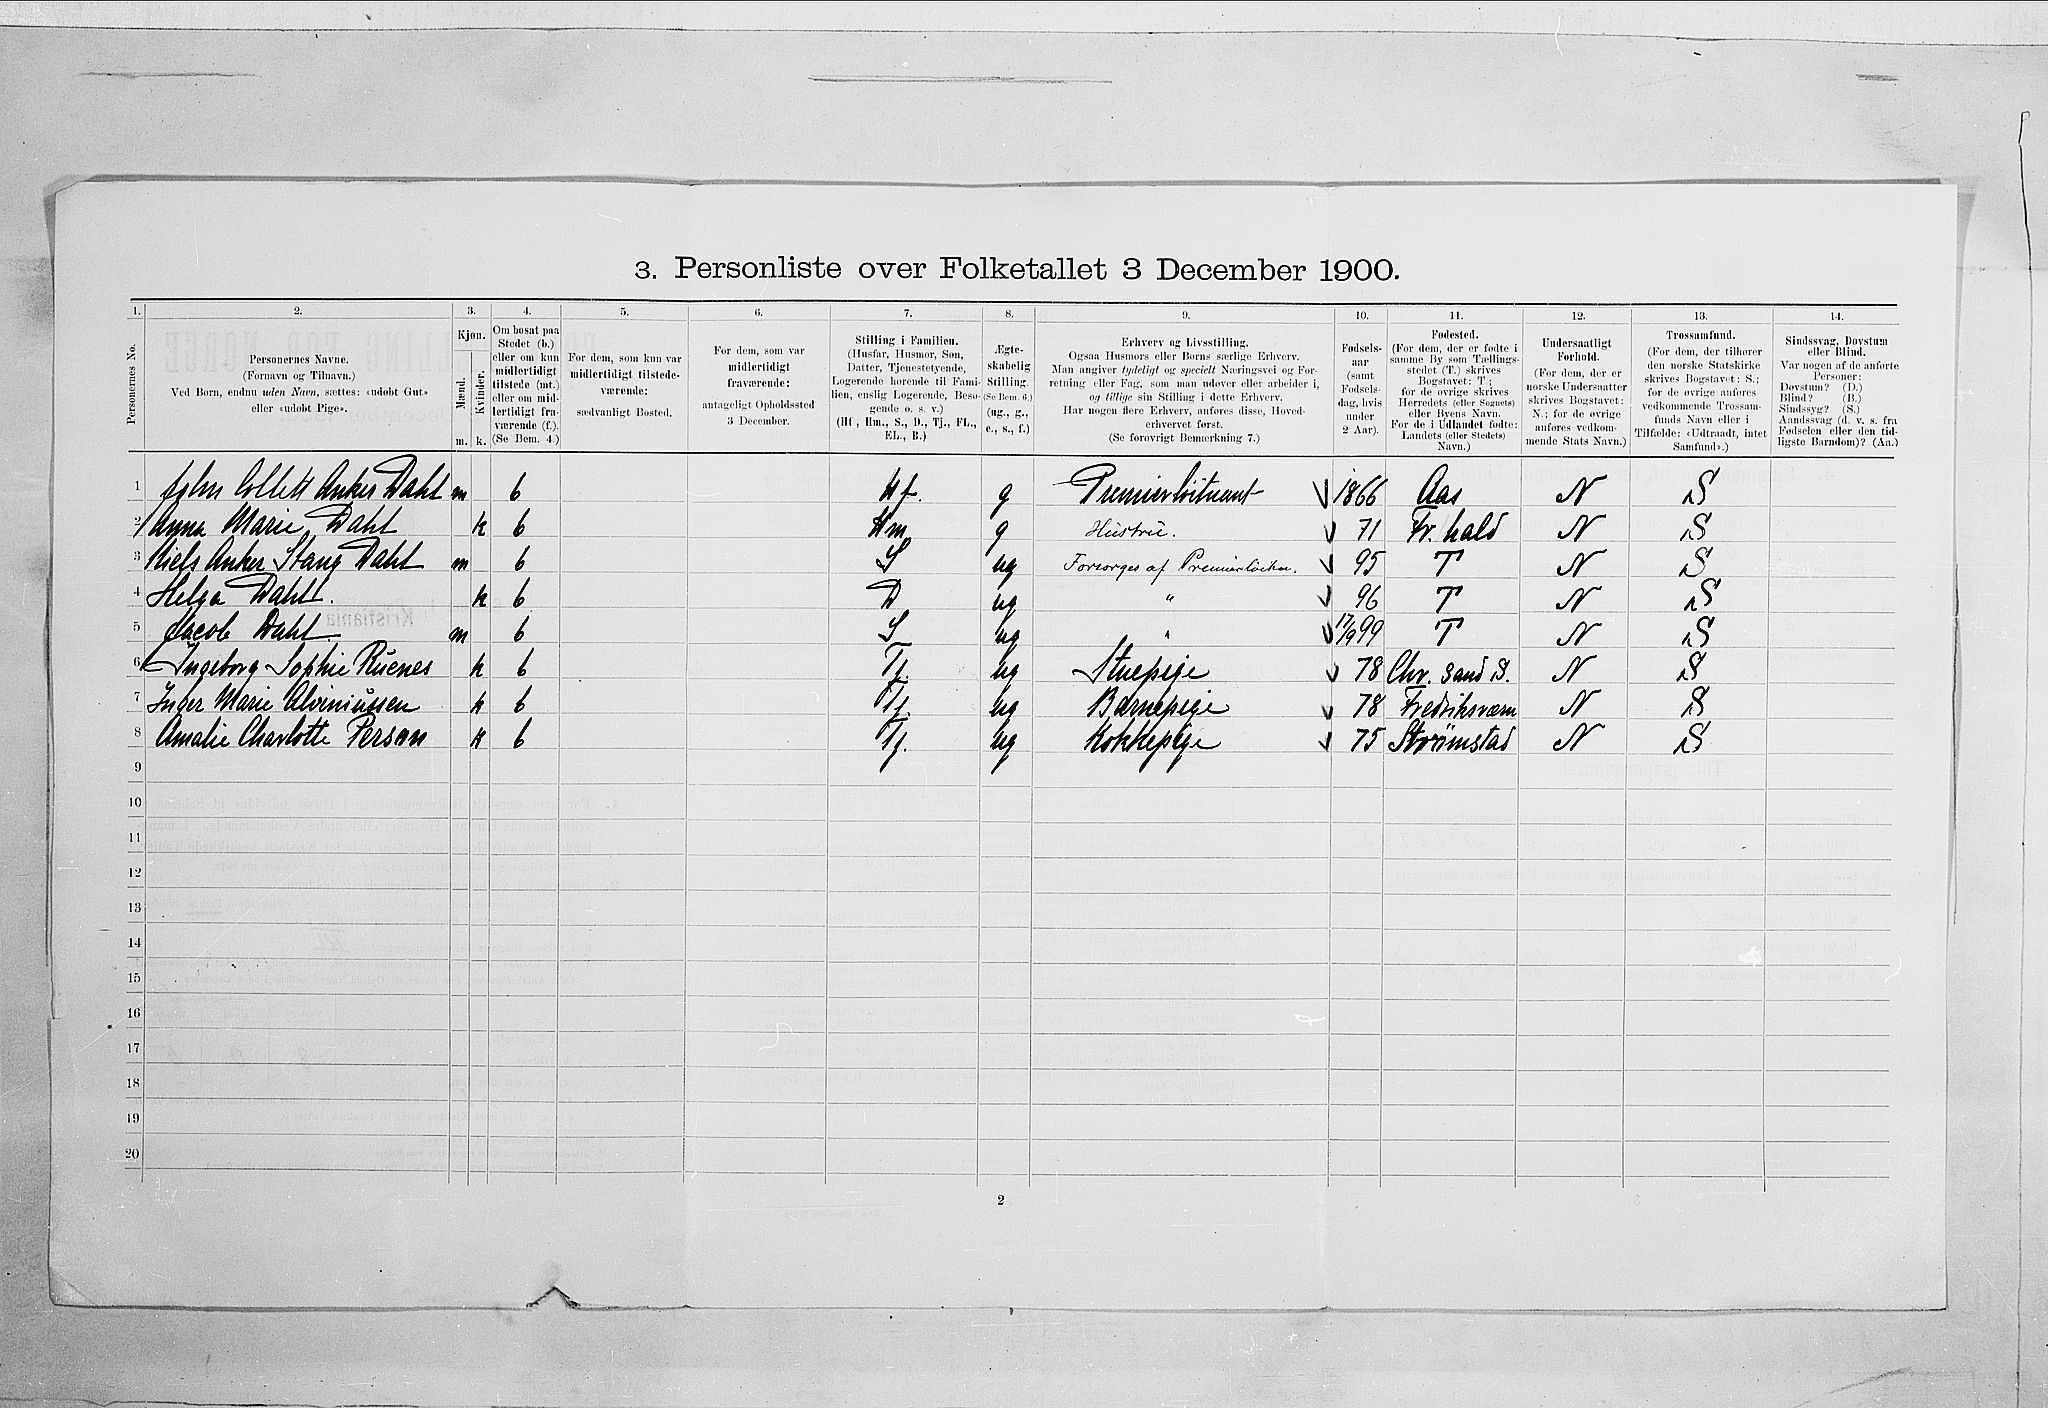 3. Personliste over Folketallet 3 December 1900.
1. 2. 3. 4. 5. 6. 7. 8. 9. 10. 11. 12. 13. 14.
Personernes No.
Personernes Navne.
(Fornavn og Tilnavn.)
Ved Børn, endnu uden Navn, sættes: «udøbt Gut»
eller «udøbt Pige».
Kjøn.
Mænd.
Kvinder.
m. k.
Om bosat paa
Stedet (b.)
eller om kun
midlertidigt
tilstede (mt.)
eller om mid-
lertidigt fra-
værende (f.).
(Se Bem. 4.)
For dem, som kun var
midlertidigt tilstede-
værende:
sædvanligt Bosted.
For dem, som var
midlertidigt
fraværende:
antageligt Opholdssted
3 December.
Stilling i Familien.
(Husfar, Husmor, Søn,
Datter, Tjenestetyende,
Logerende hørende til Fami-
lien, enslig Logerende, Besø-
gende o. s. v.)
(Hf., Hm., S., D., Tj., FL.,
EL., B.)
Ægte-
skabelig
Stilling.
(Se Bem. 6.)
(ug., g.,
e., s., f.)
Erhverv og Livsstilling.
Ogsaa Husmors eller Børns særlige Erhverv.
Man angiver tydeligt og specielt Næringsvei og For-
retning eller Fag, som man udøver eller arbeider i,
og tillige sin Stilling i dette Erhverv.
Har nogen flere Erhverv, anføres disse, Hoved-
erhvervet først.
(Se forøvrigt Bemærkning 7.)
Fødsels-
aar
(samt
Fødsels-
dag, hvis
under
2 Aar).
Fødested.
(For dem, der er fødte i
samme By som Tællings-
stedet (T.) skrives
Bogstavet: T.;
for de øvrige skrives
Herredets (eller Sognets)
eller Byens Navn.
For de i Udlandet fødte:
Landets (eller Stedets)
Navn.)
Undersaatligt
Forhold.
(For dem, der er
norske Undersaatter
skrives Bogstavet:
N.; for de øvrige
anføres vedkom-
mende Stats Navn.)
Trossamfund.
(For dem, der tilhører
den norske Statskirke
skrives Bogstavet: S.;
for de øvrige anføres
vedkommende Trossam-
funds Navn eller i
Tilfælde: «Udtraadt, intet
Samfund».)
Sindssvag, Døvstum
eller Blind.
Var nogen af de anførte
Personer:
Døvstum? (D.)
Blind? (B.)
Sindssyg? (S.)
Aandssvag (d. v. s. fra
Fødselen eller den tid-
ligste Barndom)? (Aa.)
1 John Collett Anker Dahl m b Hf. g Premierløitnant 1866 Aas N S
2 Anna Marie Dahl k b Hm g Hustru. 71 Fr. hald N S
3 Niels Anker Stang Dahl m b S ug Forsørges af 95 T N S
4 Helga Dahl. k b D ug " 96 T N S
5 Jacob Dahl m b S ug " 17/9 99 T N S
6 Ingeborg Sophie Ruenes k b Tj. ug Stuepige 78 Chr. sand S. N S
7 Inger Marie k b Tj. ug Barnepige 78 Fredriksværn N S
8 Amalie Charlotte Persen k b Tj. ug Kokkepige 75 Strømstad N S
9
10
11
12
13
14
15
16
17
18
19
20
2